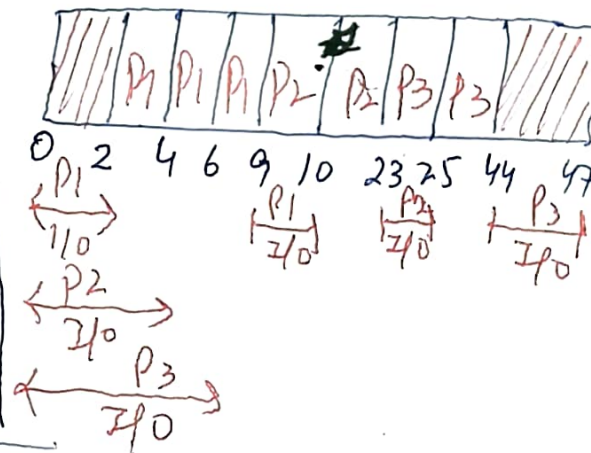 P1 P1 P1 P2 P2 P3 P3
0 2 4 6 9 10 23 25 44 47
P1 P1 P2 P3
I/O I/O I/O I/O
P2
I/O
P3
I/O